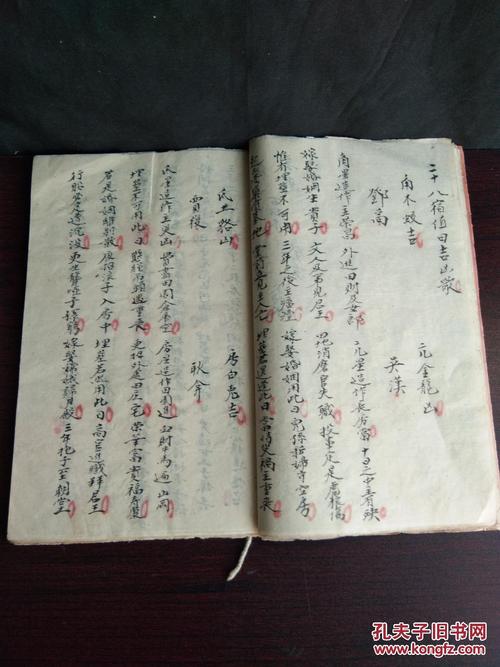 二十八宿值日吉凶歌
角木蛟吉　亢金龍凶
鄧禹　吳漢
角星造作主榮昌　外進田財及女郎　亢星造作長房當　十日之中主有殃
嫁娶婚姻生貴子　文人及第見君王　田地消磨官失職　投軍定是虎狼傷
惟有埋葬不可用　三年之後主瘟　嫁娶婚姻用此日　兒孫新婦守空房
堂前立見主人亡　埋葬若還逢此日　當時災禍主重喪
氐土貉凶　房日兔吉
賈復　耿弇
氐星造作主災凶　費盡田園倉庫空　房星造作田園進　血財牛馬遍山崗
埋葬不可用此日　懸繩吊頸禍重重　更招外處田庄宅　榮華富貴福壽康
若是婚姻離別散　夜招浪子入房中　埋葬若然用此日　高官進職拜君王
行船必定遭沉沒　更生聾啞子孫窮　嫁娶嫦娥歸月殿　三年抱子至朝堂
孔夫子旧书网
www.kongfz.com